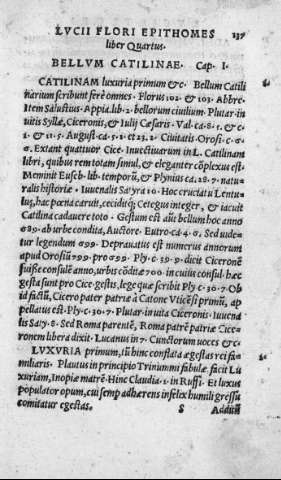 LVCII FLORI EPITHOMES 137
liber Quartus.
BELLVM CATILINAE. Cap. I.
CATILINAM luxuria primum &c. Bellum Catili
narium scribunt fere omnes. Florus 102. & 103. Abbre.
Item Salustius. Appia. lib. 2. bellorum ciuilium. Plutar. in
uitis Syllæ, Ciceronis, & Iulij Cæsaris. Val. ca. 8. 5. & c.
2. & 11. 5. August. ca. 5. 2. et 23. 2. Ciuitatis Orosi. 6. 6
6. Extant quattuor Cice. Inuectiuarum in L. Catilinam
libri, quibus rem totam simul, & eleganter cõplexus est.
Meminit Euseb. lib. temporũ, & Plynius ca. 28. 7. natu-
ralis historiæ. Iuuenalis Sayra 10. Hoc cruciatu Lentu-
lus, hac pœna caruit, ceciditq; Cetegus integer, & iacuit
Catilina cadauere toto. Gestum est aũt bellum hoc anno
689. ab urbe condita, Auctore. Eutro. ca. 4. 6. Sed uide-
tur legendum 699. Deprauatus est numerus annorum
apud Orosiũ 99. pro 699. Ply. c. 39. 9. dicit Ciceronẽ
fuisse consulẽ anno, urbis cõditæ 700. in cuius consul. hæc
gesta sunt pro Cice. gestis, lege quæ scribit Ply c. 30. 7. Ob
id factũ, Cicero pater patriæ à Catone Vticẽsi primũ, ap
pellatus est. Ply. c. 30. 7. Plutar. in uita Ciceronis. Iuuena
lis Saty. 8. Sed Roma parentẽ, Roma patrẽ patriæ Cice-
ronem libera dixit. Lucanus in 7. Cunctorum uoces & c.
LVXVRIA primum, tũ hinc conflata ægestas rei fa
miliaris. Plautus in principio Trinummi fabulæ facit Lu
xuriam, Inopiæ matrẽ. Hinc Claudia. 1. in Ruffi. Et luxus
populator opum, cui semp adhærens infelix humili gressu
comitatur egestas. S Aditiũ